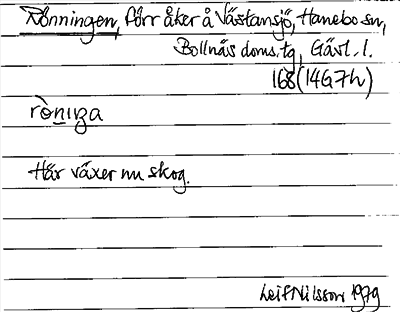 Rönningen, förr åker å Västansjö, Hanebo sn,
Bollnäs doms. tg, Gävl. l.
168 (14G7h)
rònıŋa
Här växer nu skog.
Leif Nilsson 1979